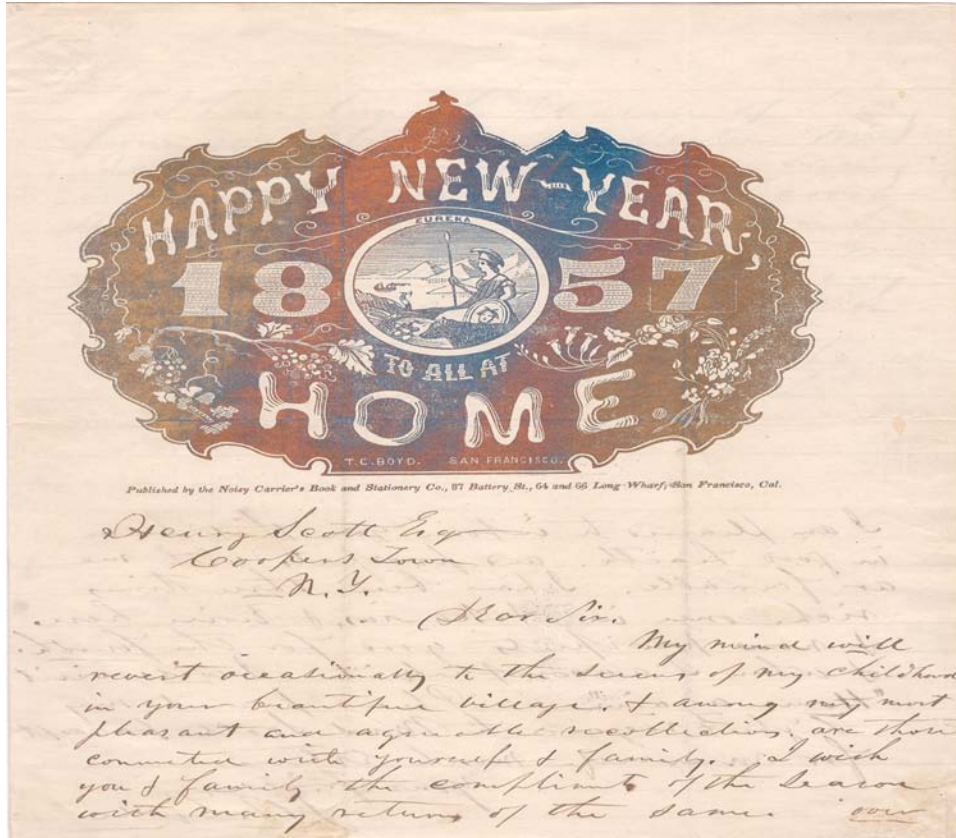 HAPPY NEW-YEAR,
EUREKA
1857
TO ALL AT
HOME.
T.C. BOYD. SAN FRANCISCO.
Published by the Noisy Carrier's Book and Stationery Co., 87 Battery St., 64 and 66 Long Wharf, San Francisco, Cal.
Henry Scott Esq
Coopers Town
N.Y.
Dear Sir.
My mind will
revert occasionally to the scenes of my childhood
in your beautiful village. & among my most
pleasant and agreeable recollections. are those
connected with yourself & family. I wish
you & family the compliments of the season
with many returns of the same. over